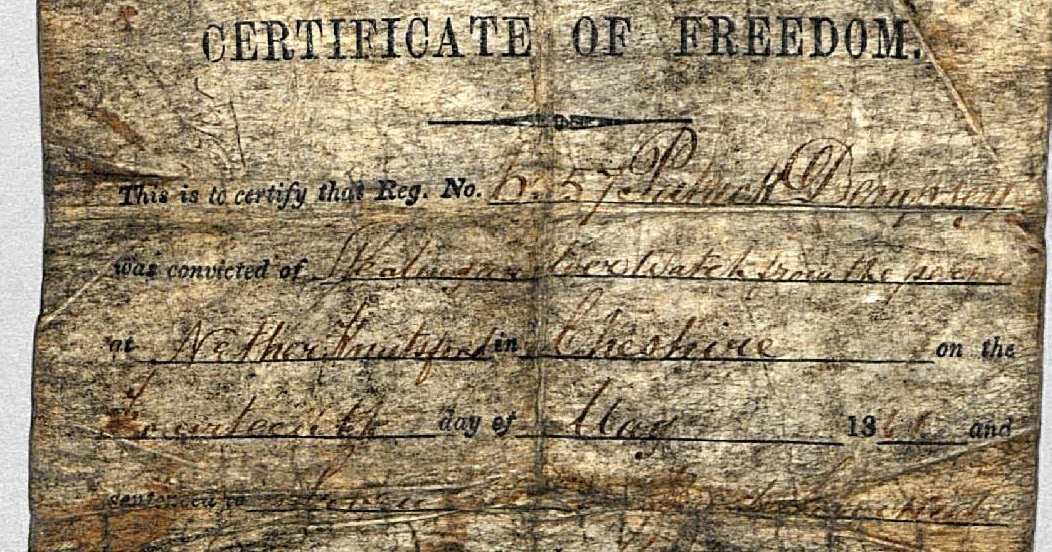 CERTIFICATE OF FREEDOM.
This is to certify that Reg. No. 6.57 Patrick Dempsey
was convicted of Stealing a Silver Watch from the person
at Nether Knutsford in Cheshire on the
Fourteenth day of May 18 and
sentenced to